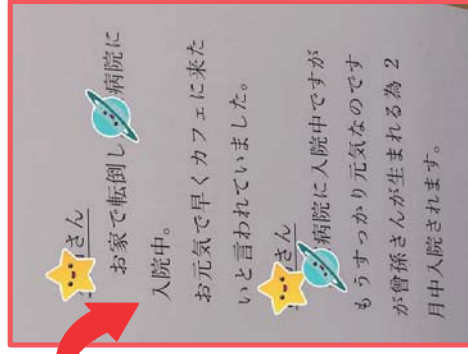 さん
お家で転倒し病院に
入院中。
お元気で早くカフェに来た
いと言われていました。
さん
病院に入院中ですが
もうすっかり元気なのです
が曾孫さんが生まれる為２
月中入院されます。